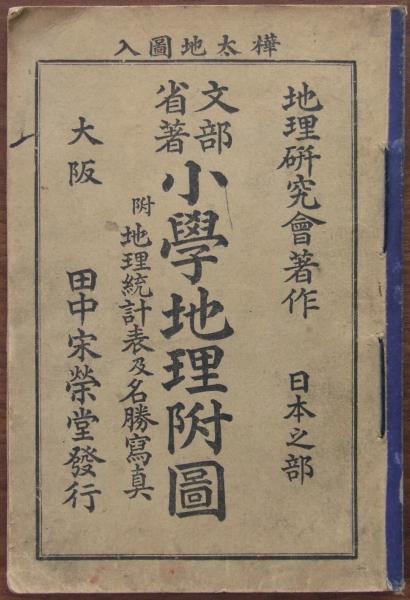 樺太地圖入
地理硏究會著作　日本之部
文部省著
小學地理附圖
附地理統計表及名勝寫真
大阪　田中宋榮堂發行